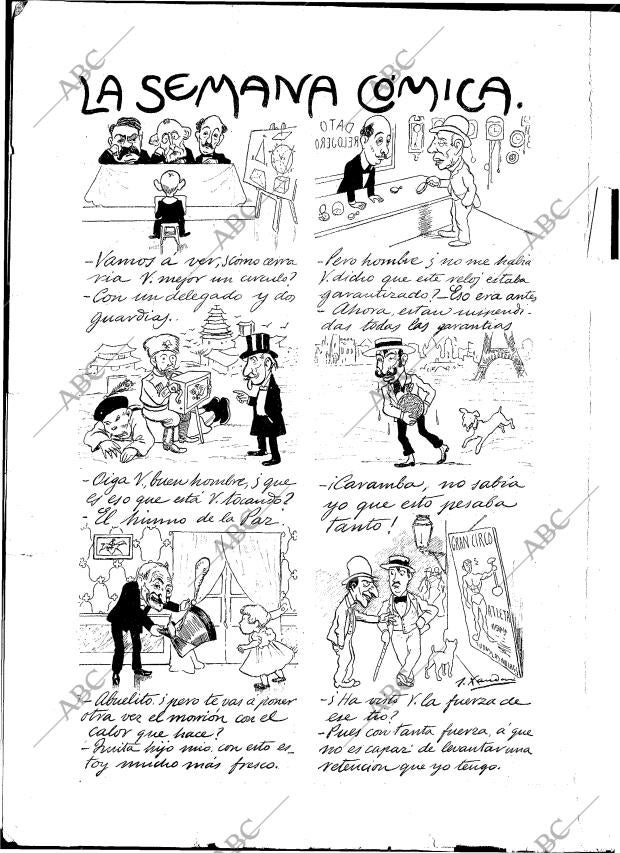 LA SEMANA CÓMICA.
DATO
RELOJERO
-Vamos a ver, ¿cómo cerra
ria V. mejor un circulo?
-Con un delegado y dos
guardias.
-Pero hombre ¿no me habia
V. dicho que este reloj estaba
garantizado? -Eso era antes
- Ahora, estan suspendi-
das todas las garantias
-Oiga V, buen hombre, ¿que
es eso que está V. tocando?
El himno de la Paz
-¡Caramba, no sabia
yo que esto pesaba
tanto!
GRAN CIRCO
ATLETA
-Abuelito ¿pero te vas á poner
otra vez el morrión con el
calor que hace?
-Quita hijo mio. con esto es-
toy mucho más fresco.
-¿Ha visto V. la fuerza de
ese tio?
-Pues con tanta fuerza, á que
no es capaz de levantar una
retencion que yo tengo.
ABC